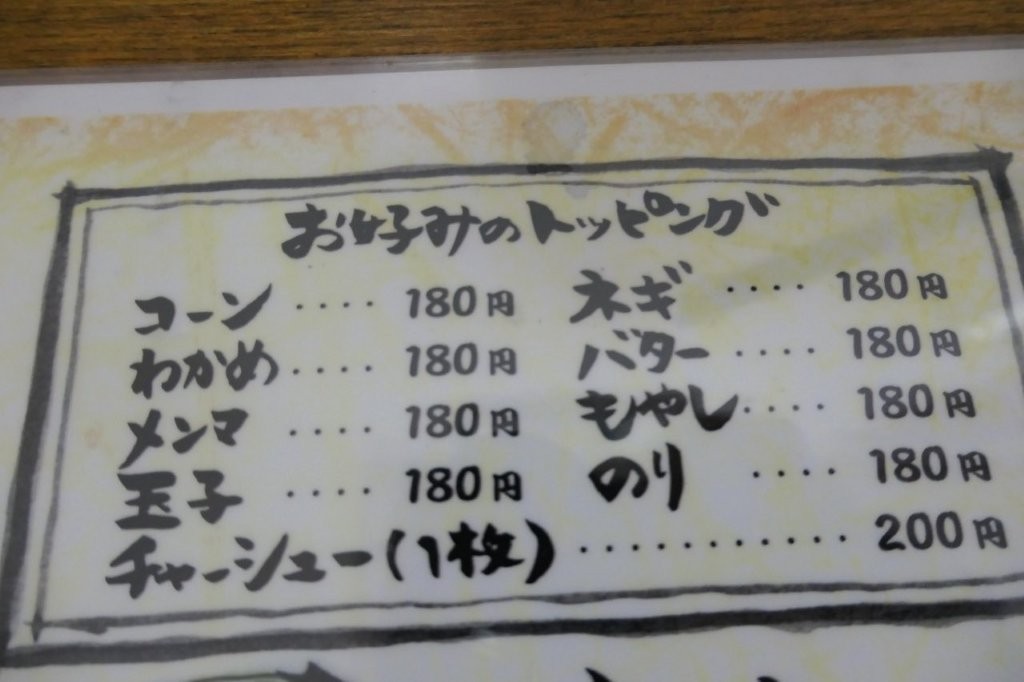 お好みのトッピング
コーン ････ 180円
わかめ ････ 180円
メンマ ････ 180円
玉子 ････ 180円
ネギ ････ 180円
バター ････ 180円
もやし ････ 180円
のり ････ 180円
チャーシュー(1枚) ･･･････････ 200円